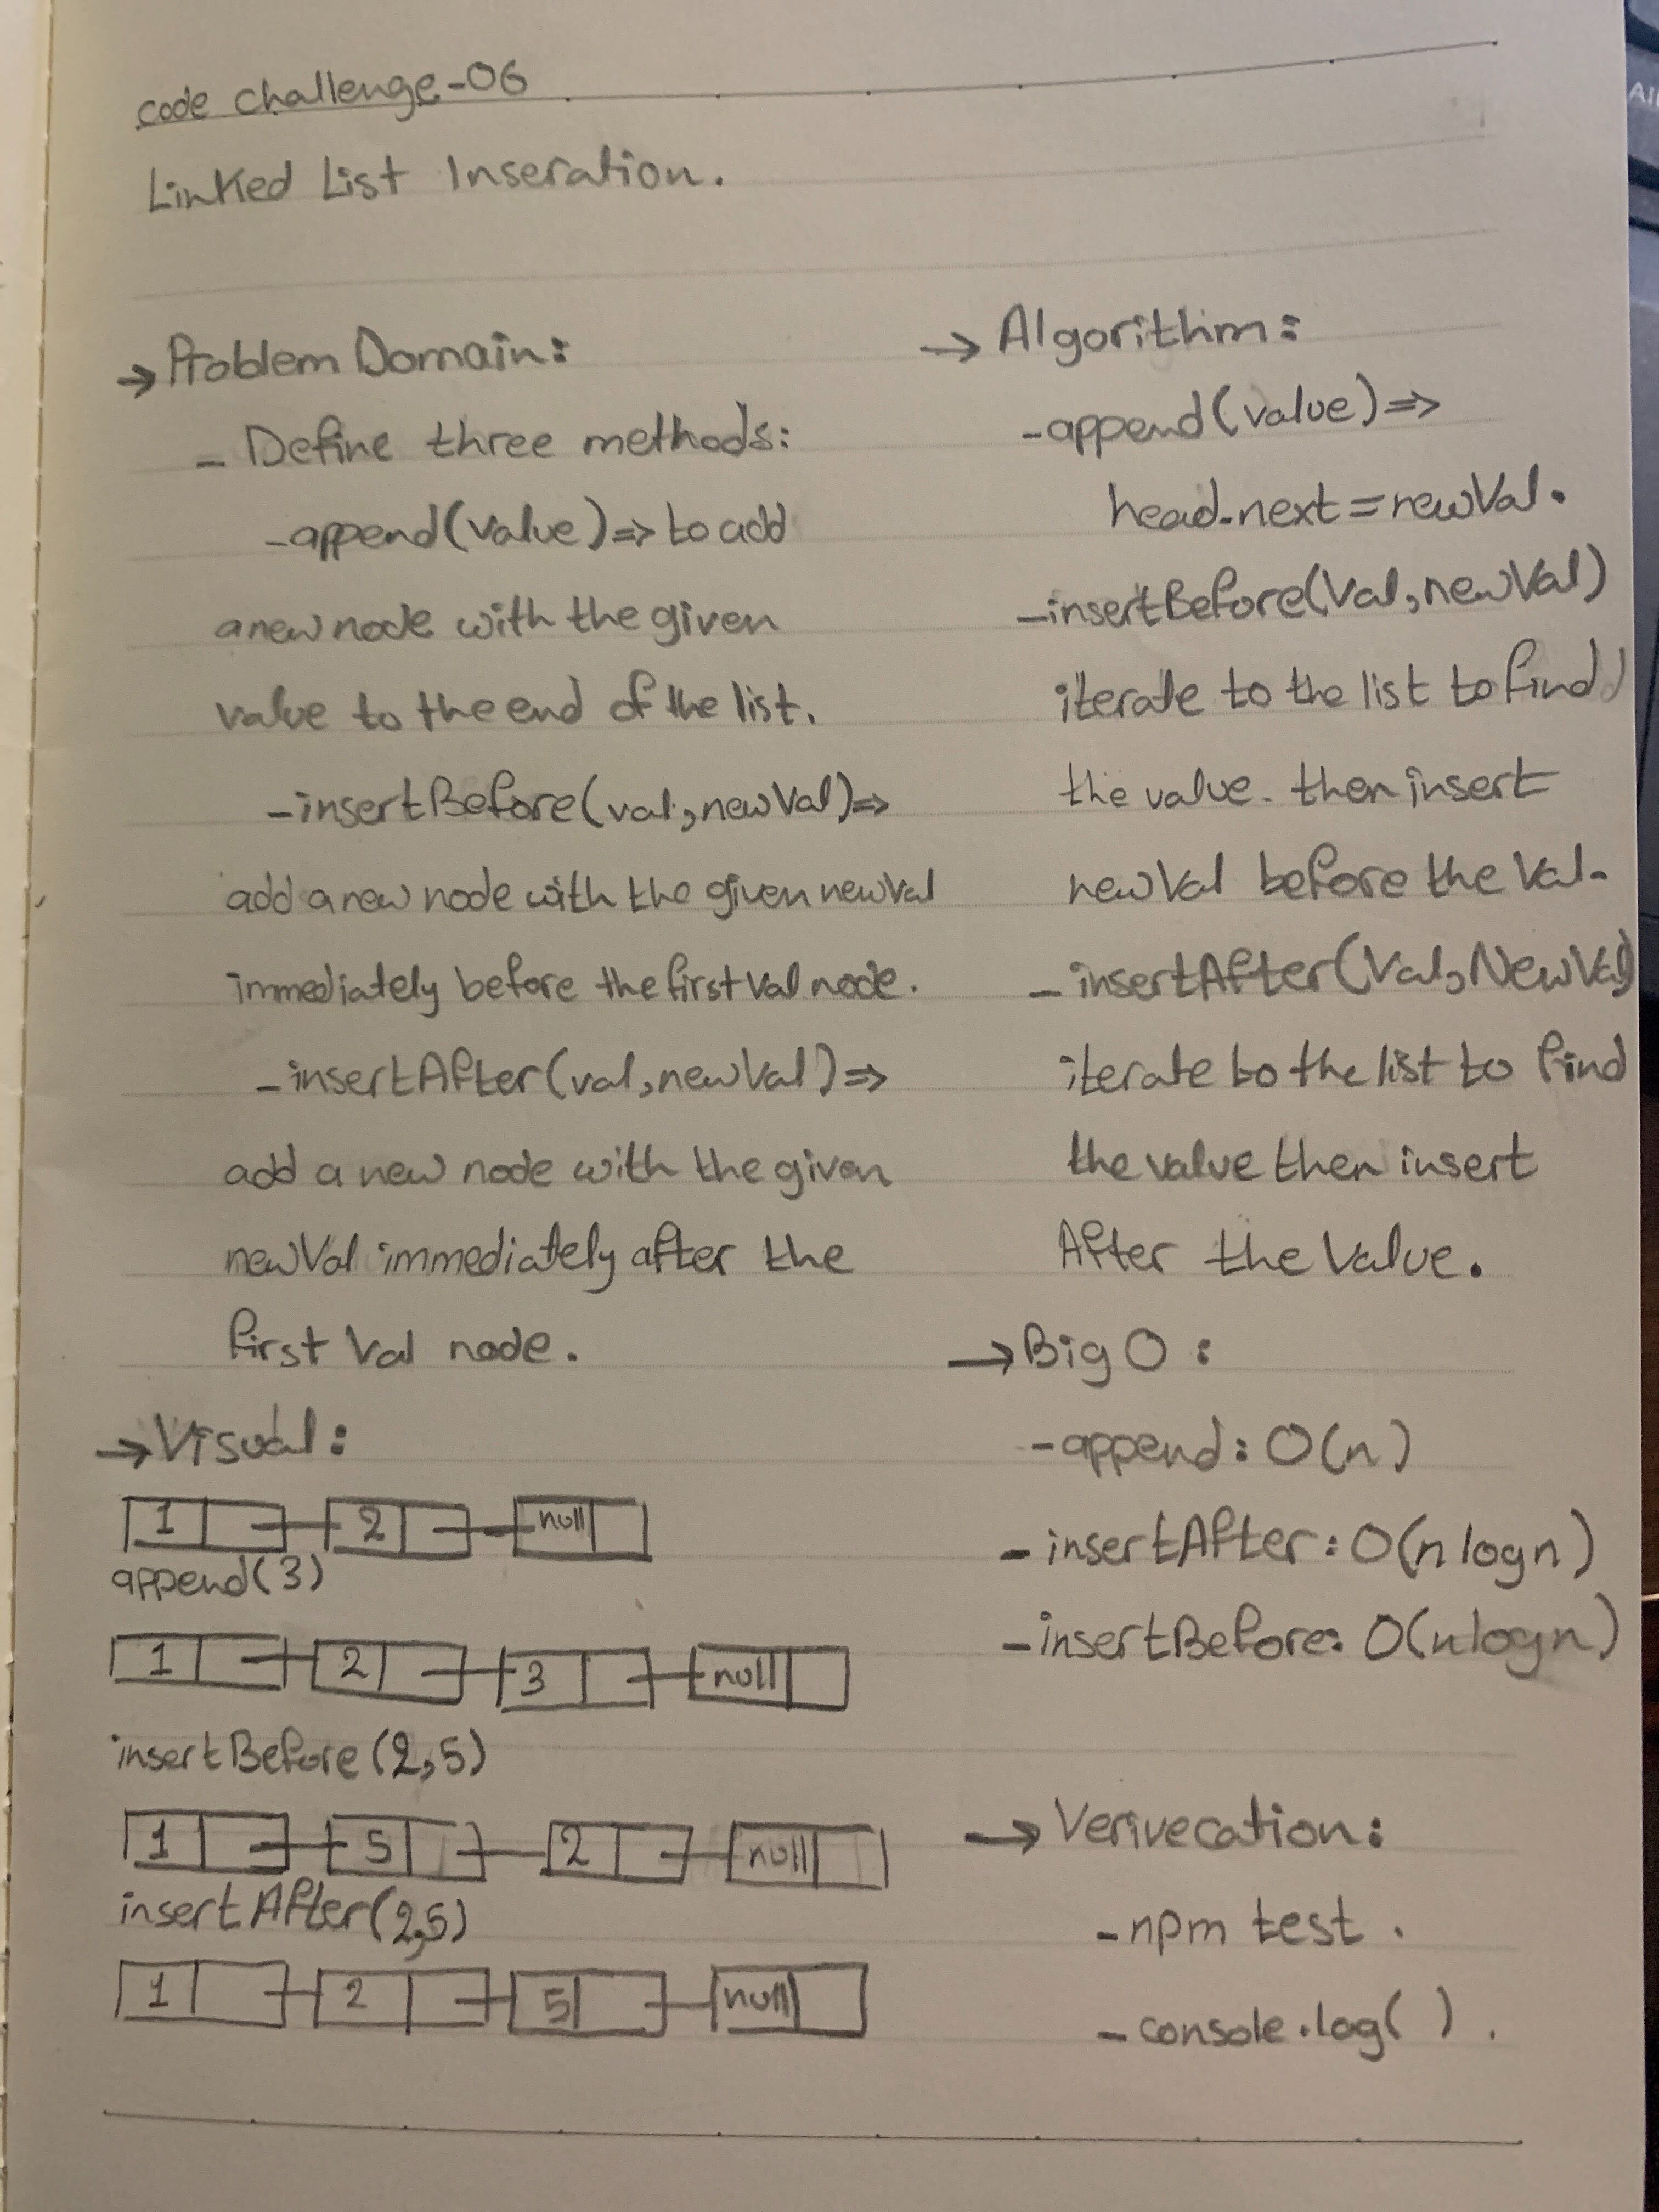 code challenge-06
Linked List Inseration.
→ Problem Domain:
- Define three methods:
-append(value)=> to add
a new node with the given
value to the end of the list.
-insertBefore(val,newVal)=>
add a new node with the given newVal
immediately before the first val node.
-insertAfter(val,newVal)=>
add a new node with the given
newVal immediately after the
first Val node.
→ Visual:
1 2 null
append(3)
1 2 3 null
insertBefore(2,5)
1 5 2 null
insertAfter(2,5)
1 2 5 null
→ Algorithm:
-append(value)=>
head.next=newVal.
-insertBefore(Val,newVal)
iterate to the list to find
the value. then insert
newVal before the Val.
-insertAfter(Val,NewVal)
iterate to the list to find
the value then insert
After the Value.
→ Big O:
-append: O(n)
- insertAfter: O(n logn)
-insertBefore: O(nlogn)
→ Verivecation:
-npm test.
-console.log( ).